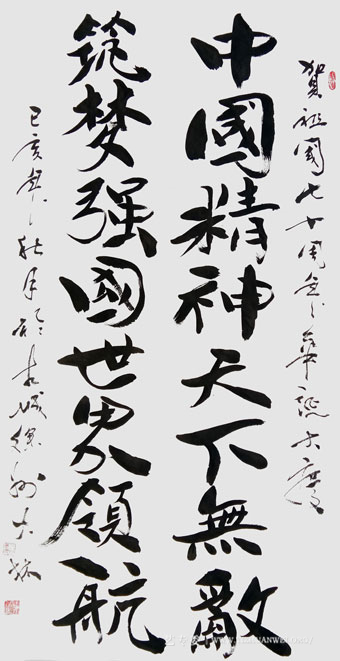 賀祖國七十周年之華誕大慶
中國精神天下無敵
筑梦强國世界領航
己亥年之秋月